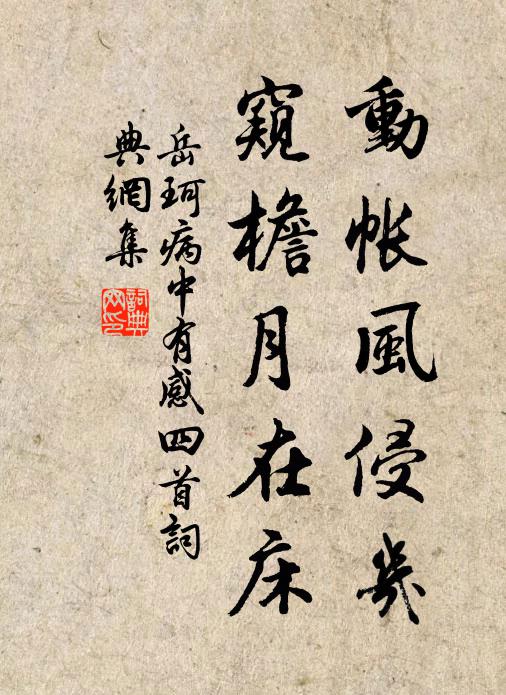 動帳風侵几
窺檐月在床
岳珂病中有感四首詞
典網集
詞典
网印